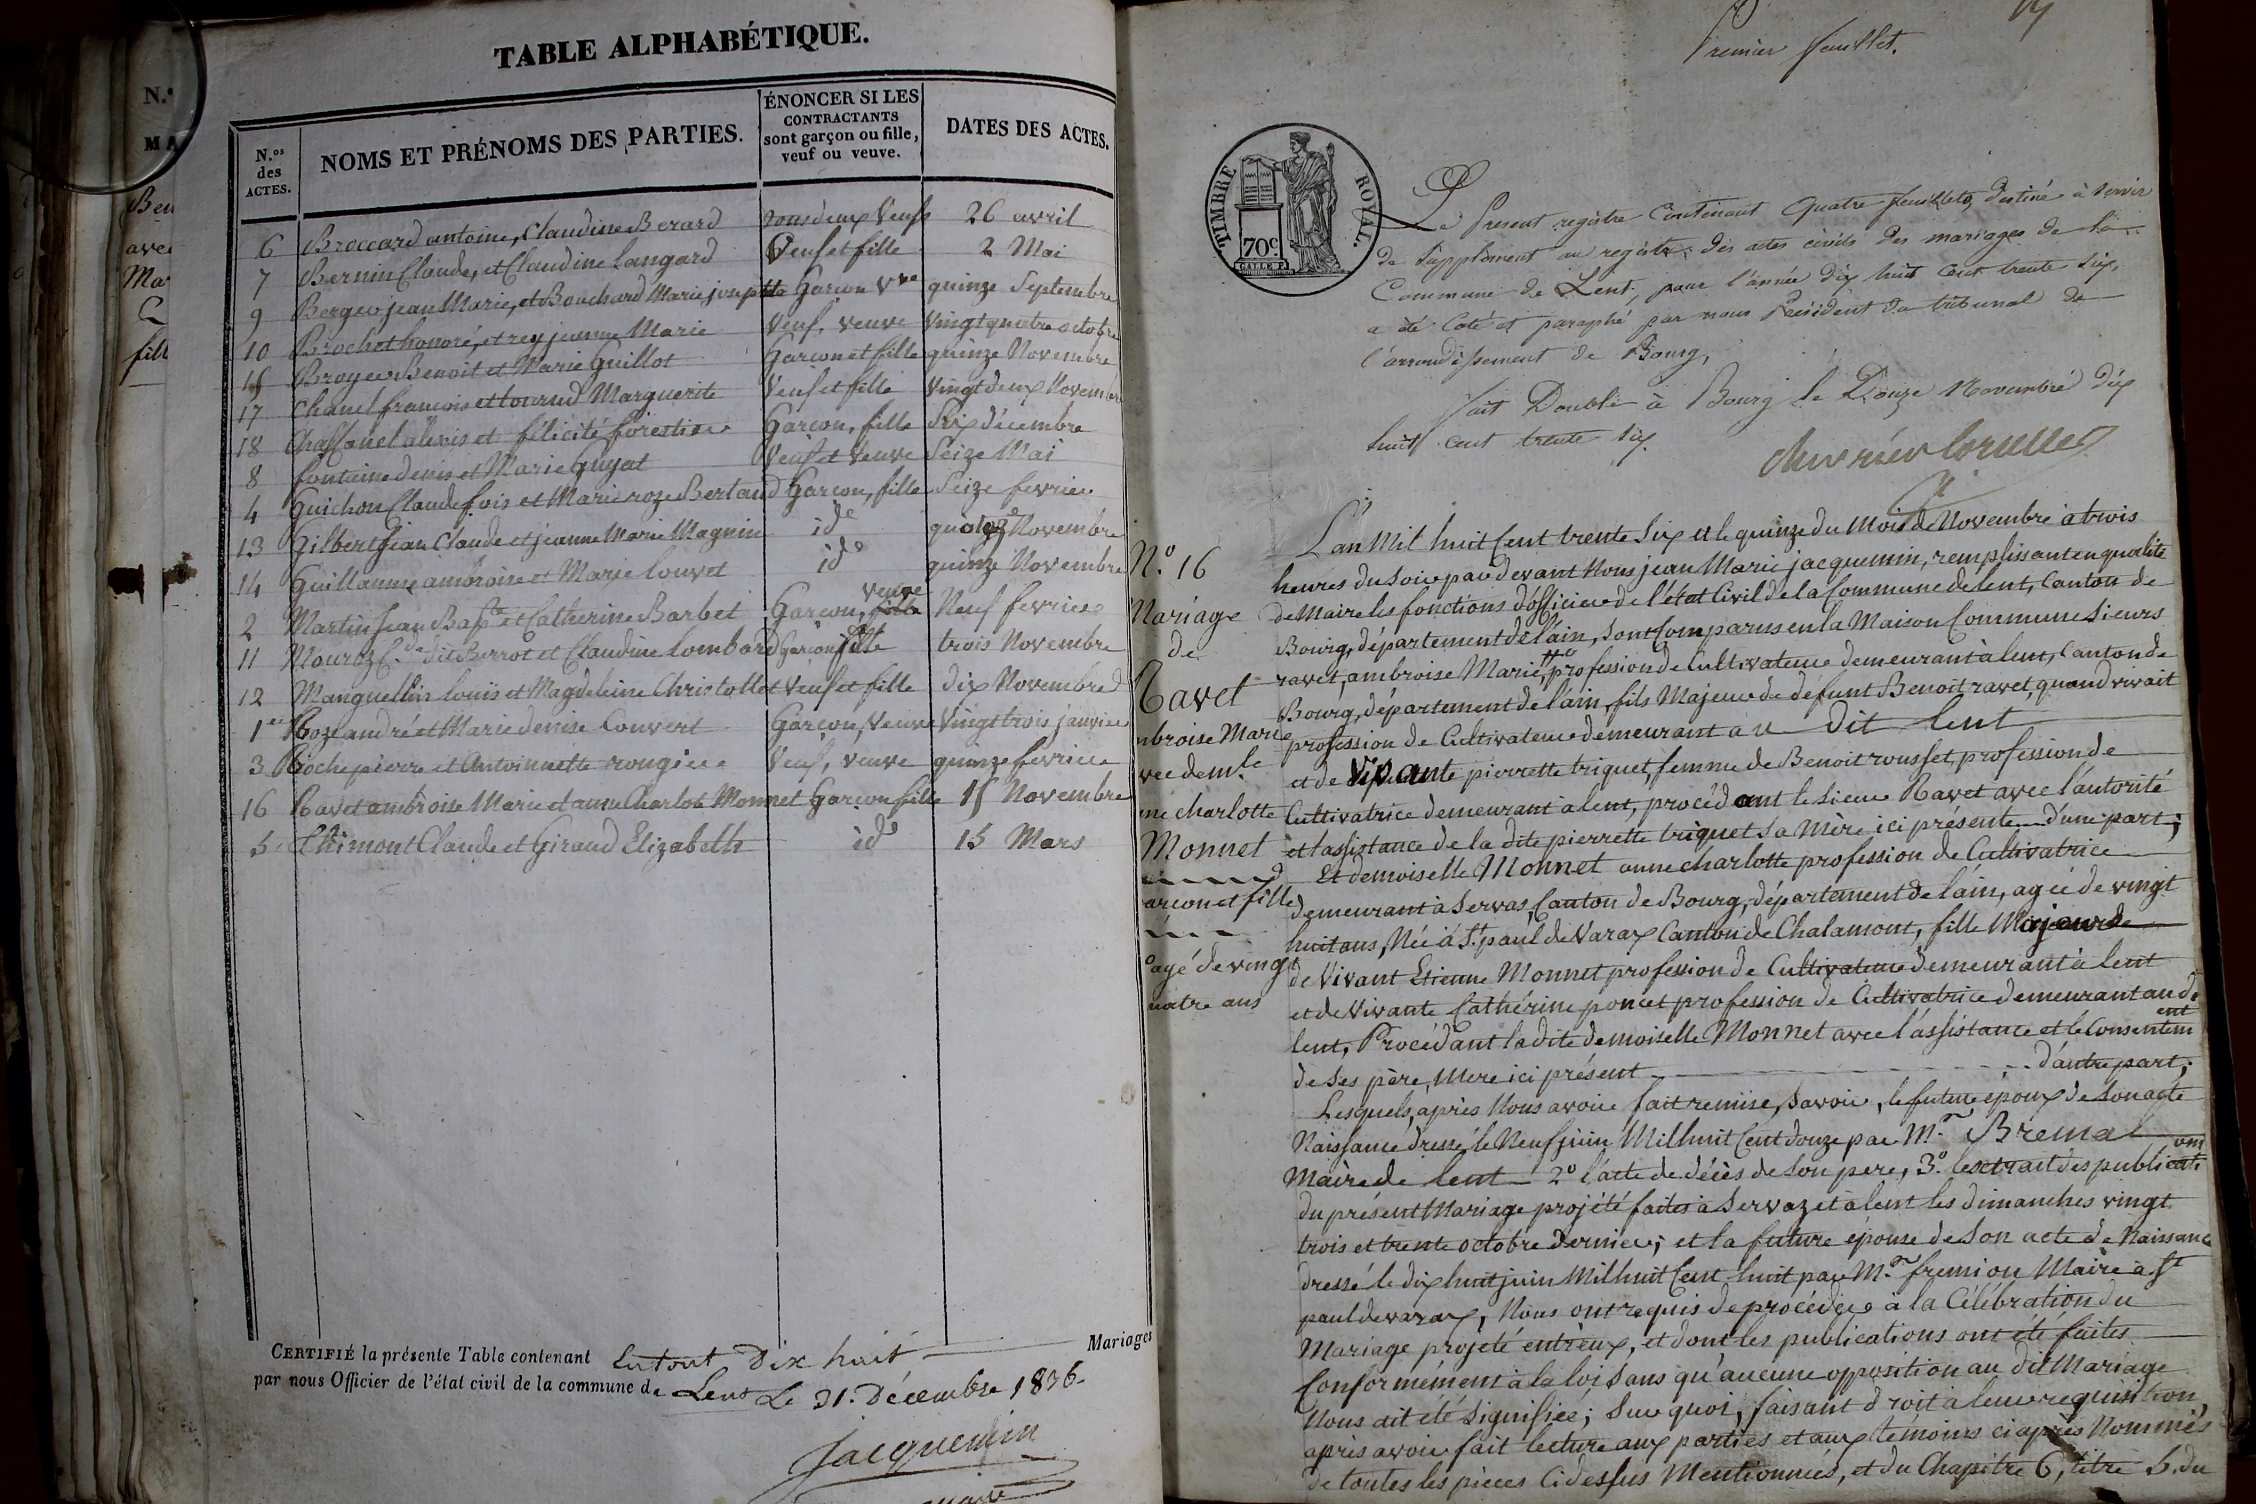 TABLE ALPHABÉTIQUE.
N.os des ACTES.
NOMS ET PRÉNOMS DES PARTIES.
ÉNONCER SI LES CONTRACTANTS sont garçon ou fille, veuf ou veuve.
DATES DES ACTES.
6 Broccard antoine, Claudine Berard tous deux Veufs 26 avril
7 Bernin Claude, et Claudine Langard Veuf et fille 2 Mai
9 Berger jean Marie, et Bouchard Marie josephte Garcon Vve quinze Septembre
10 Brochet honoré, et rey jeanne Marie Veuf, veuve Vingt quatre octobre
15 Broyer Benoit et Marie Guillot Garcon et fille quinze Novembre
17 Chanel francois et tournd Marguerite Veuf et fille Vingt deux Novembre
18 Chassanel alexis et félicité forestier Garcon, fille Six décembre
8 fontaine denis et Marie Guyat Veuf et Veuve Seize Mai
4 Guichon Claude fois et Marie roze Bertaud Garcon, fille Seize fevrier
13 Gilbert jean Claude et jeanne Marie Magnin ide quatorze Novembre
14 Guillaume ambroise et Marie louvet ide quinze Novembre
2 Martin Jean Bapte et Catherine Barbet Garcon, veuve Neuf fevrier
11 Mouroz Cde dit Berrot et Claudine lombard Garcon fille trois Novembre
12 Manguelin louis et Magdeleine Christollet Veuf et fille dix Novembre
1er Roze andré et Marie denise Convert Garcon, Veuve Vingt trois janvier
3 Roche pierre et Antoinette rougier Veuf, veuve quinze fevrier
16 Ravet ambroise Marie et anne Charlot Monnet Garcon fille 15 Novembre
5 Thimont Claude et Giraud Elizabeth id 15 Mars
CERTIFIÉ la présente Table contenant en tout Dix huit Mariages
par nous Officier de l'état civil de la commune de Lent Le 31. Décembre 1836.
Jacquemin
Premier feuillet.
TIMBRE ROYAL.
70c.
Le Present registre Contenant Quatre feuillets, destiné à servir
de Supplément au registre des actes civils des mariages de la
Commune de Lent, pour l'année dix huit cent trente six,
a été Coté et paraphé par nous Président du tribunal de
l'arrondissement de Bourg,
fait Double à Bourg le Douze Novembre dix
huit cent trente six.
No. 16
Mariage
de
Ravet
mbroise Marie
vec demle
ne charlotte
Monnet
arcon et fille
agé de vingt
uatre ans
L'an Mil huit Cent trente Six et le quinze du Mois de Novembre à trois
heures du Soir par devant Nous jean Marie jacquemin, remplissant en qualité
de Maire les fonctions d'officier de l'état Civil de la Commune de lent, Canton de
Bourg, département de l'ain, Sont Comparus en la Maison Commune Sieurs
ravet, ambroise Marie, profession de Cultivateur demeurant à lent, Canton de
Bourg, département de l'ain, fils Majeur de défunt Benoit ravet, quand vivait
profession de Cultivateur demeurant au dit lent
et de Vivante pierrette triquet, femme de Benoit rousset, profession de
Cultivatrice demeurant à lent, procédant le Sieur Ravet avec l'autorité
et l'assistance de la dite pierrette triquet sa Mère ici présente d'une part;
Et demoiselle Monnet anne charlotte profession de Cultivatrice
demeurant à Servas, Canton de Bourg, département de l'ain, agée de vingt
huit ans, Née à St. paul de Varax Canton de Chalamont, fille Majeure
de Vivant Etienne Monnet profession de Cultivateur demeurant à lent
et de Vivante Cathérine poncet profession de Cultivatrice demeurant au dt
lent, Procédant la dite demoiselle Monnet avec l'assistance et le Consentement
de Ses père, Mere ici présent d'autre part;
Lesquels, après Nous avoir fait remise, Savoir, le futur époux de Son acte
Naissance dressé le Neuf juin Mil huit Cent douze par Mr. Bremal
Maire de lent 2o l'acte de décès de Son pere, 3o. les extrait des publications
du présent Mariage projété faites à Servaz et à lent les dimanches vingt
trois et trente octobre dernier; et la future épouse de Son acte de Naissance
dressé le dix huit juin Mil huit Cent huit par Mr. fremion Maire à St
paul de varax, Nous ont requis de procéder à la Célébration du
Mariage projeté entr'eux, et dont les publications ont été faites
Conformément à la loi Sans qu'aucune opposition au dit Mariage
Nous ait été Signifiée; Sur quoi, faisant droit à leur requisition,
après avoir fait lecture aux parties et aux témoins ci après Nommés
de toutes les pieces Ci dessus Mentionnées, et du Chapitre 6, titre 5. du